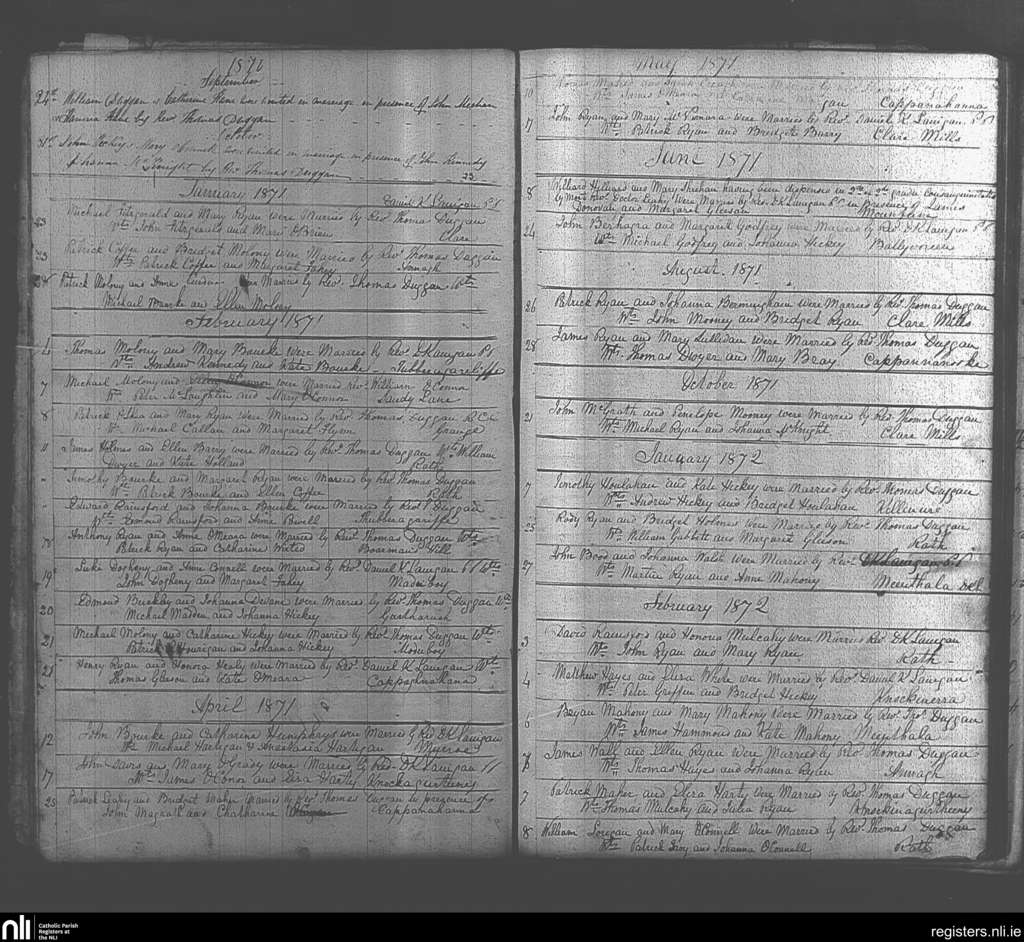 1870
September
24th William Duggan & Catherine Kane was united in marriage in presence of John Meehan
& Hanoria Kane by Rev. Thomas Duggan
October
31st John Mary was united in marriage in presence of John Kennedy
Johanna McKnight by Rev Thomas Duggan
January 1871
Daniel K Lanigan PP
23 Michael Fitzgerald and Mary Ryan were Married by Rev Thomas Duggan
Wts John Fitzgerald and Mary OBrien Clare
23 Patrick Coffee and Bridget Molony were Married by Revd Thomas Duggan
Wts Patrick Coffee and Margaret Fahey Annagh
28 Patrick Molony and Anne were Married by Revd Thomas Duggan Wts
Michael Bourke and Ellen Molony
February 1871
4 Thomas Molony and Mary Bourke were Married by Revd DKLanigan PP
Wts Andrew Kennedy and Kate Bourke
7 Michael Molony and OConnor were Married revd William OConnor
Wts Peter McLaughlin and Mary OConnor Sandy Lane
8 Patrick Shea and Mary Ryan were Married by Revd Thomas Duggan R.C.C.
Wts Michael Callan and Margaret Flynn Grange
11 James Holmes and Ellen Barry were Married by Revd Thomas Duggan Wts William
Dwyer and Kate Holland Rath
" Timothy Bourke and Margaret Ryan were Married by Revd Thomas Duggan
Wts Patrick Bourke and Ellen Coffee Rath
" Edward Rainsford and Johanna Bourke were Married by Revd T Duggan
Wts Edmond Rainsford and Anne
18 Anthony Ryan and Anne OMeara were Married by Revd Thomas Duggan Wts
Patrick Ryan and Catharine Boarmans Hill
19 Luke Dogheny and Anne were Married by Revd Daniel K Lanigan PP Wts
John Dogheny and Margaret Fahey Madenboy
20 Edmond Buckley and Johanna Devane were Married by Revd Thomas Duggan Wts
Michael Madden and Johanna Hickey
21 Michael Molony and Catharine Hickey were Married by Revd Thomas Duggan Wts
Patrick Hourigan and Johanna Hickey
21 Henry Ryan and Honora Healy were Married by Revd Daniel K Lanigan Wts
Thomas Gleeson and Kate OMeara Cappaghnahana
April 1871
12 John Bourke and Catharine Humphreys were Married by Rev DK Lanigan
Wts Michael Hartigan & Anastasia Hartigan Murroe
17 John Davis an Mary OGrady were Married by Revd DK Lanigan PP
Wts James OConor and Eliza Hartly Knockagurteeny
25 Patrick Leahy and Bridget Maher Married by Revd Thomas Duggan in presence of
John Magrath and Chatharine Cappanahanna
May 1871
10 Cappanahanna
7 John Ryan and Mary McNamara were Married by Revd Daniel K Lanigan PP
Wts Patrick Ryan and Bridgete Barry Clare Mills
June 1871
8 Williard Hilliard and Mary Shehan having been dispensed in 2nd & 2nd grade Consanguinitatis
by Most Revd Doctor Leahy Were Married by Revd DKLanigan PP in Presence of James
Donovan and Margaret Gleeson Mountain
24 John Berhagra and Margaret Godfrey were Married by Revd DKLanigan PP
Wts Michael Godfrey and Johanna Hickey Ballyvoreen
August 1871
26 Patrick Ryan and Johanna Bermingham were Married by Revd Thomas Duggan
Wts John Mooney and Bridget Ryan Clare Mills
28 James Ryan and Mary Sullivan were Married by Revd Thomas Duggan
Wts Thomas Dwyer and Mary Bray
October 1871
21 John McGrath and Penelope Mooney were Married by Revd Thomas Duggan
Wts Michael Ryan and Johanna McKnight Clare Mills
January 1872
7 Timothy Houlahan and Kate Hickey were Married by Revd Thomas Duggan
Wts Andrew Hickey and Bridget Houlahan Killeuure
25 Rody Ryan and Bridget Holmes were Married by Revd Thomas Duggan
Wts William Gubbett and Margaret Gleeson Rath
27 John Bood and Johanna Walsh were Married by Revd DKLanigan PP
Wts Martin Ryan and Anne Mahony Meenthala
February 1872
3 David Rainsford and Honora Mulcahy were Married Revd DK Lanigan
Wts John Ryan and Mary Ryan Rath
4 Matthew Hayes and Eliza White were Married by Revd Daniel K Lanigan
Wts Peter Griffin and Bridget Hickey Knockinerra
6 Bryan Mahony and Mary Mahony were Married by Revd Thos Duggan
Wts James Hammons and Kate Mahony Meenthala
7 James Wall and Ellen Ryan were Married by Revd Thomas Duggan
Wts Thomas Hayes and Johanna Ryan Annagh
7 Patrick Maher and Eliza Harty were Married by Revd Thomas Duggan
Wts Thomas Mulcahy and Julia Ryan Knockinagurtheeny
8 William Loregan and Mary OConnell were Married by Revd Thomas Duggan
Wts Patrick and Johanna OConnell Rath
nli Catholic Parish
Registers at
the NLI
registers.nli.ie